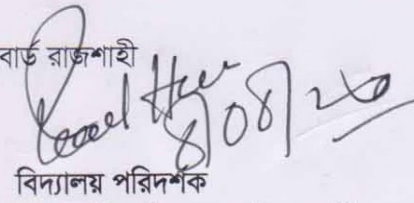 বোর্ড রাজশাহী
8/08/২৬
বিদ্যালয় পরিদর্শক